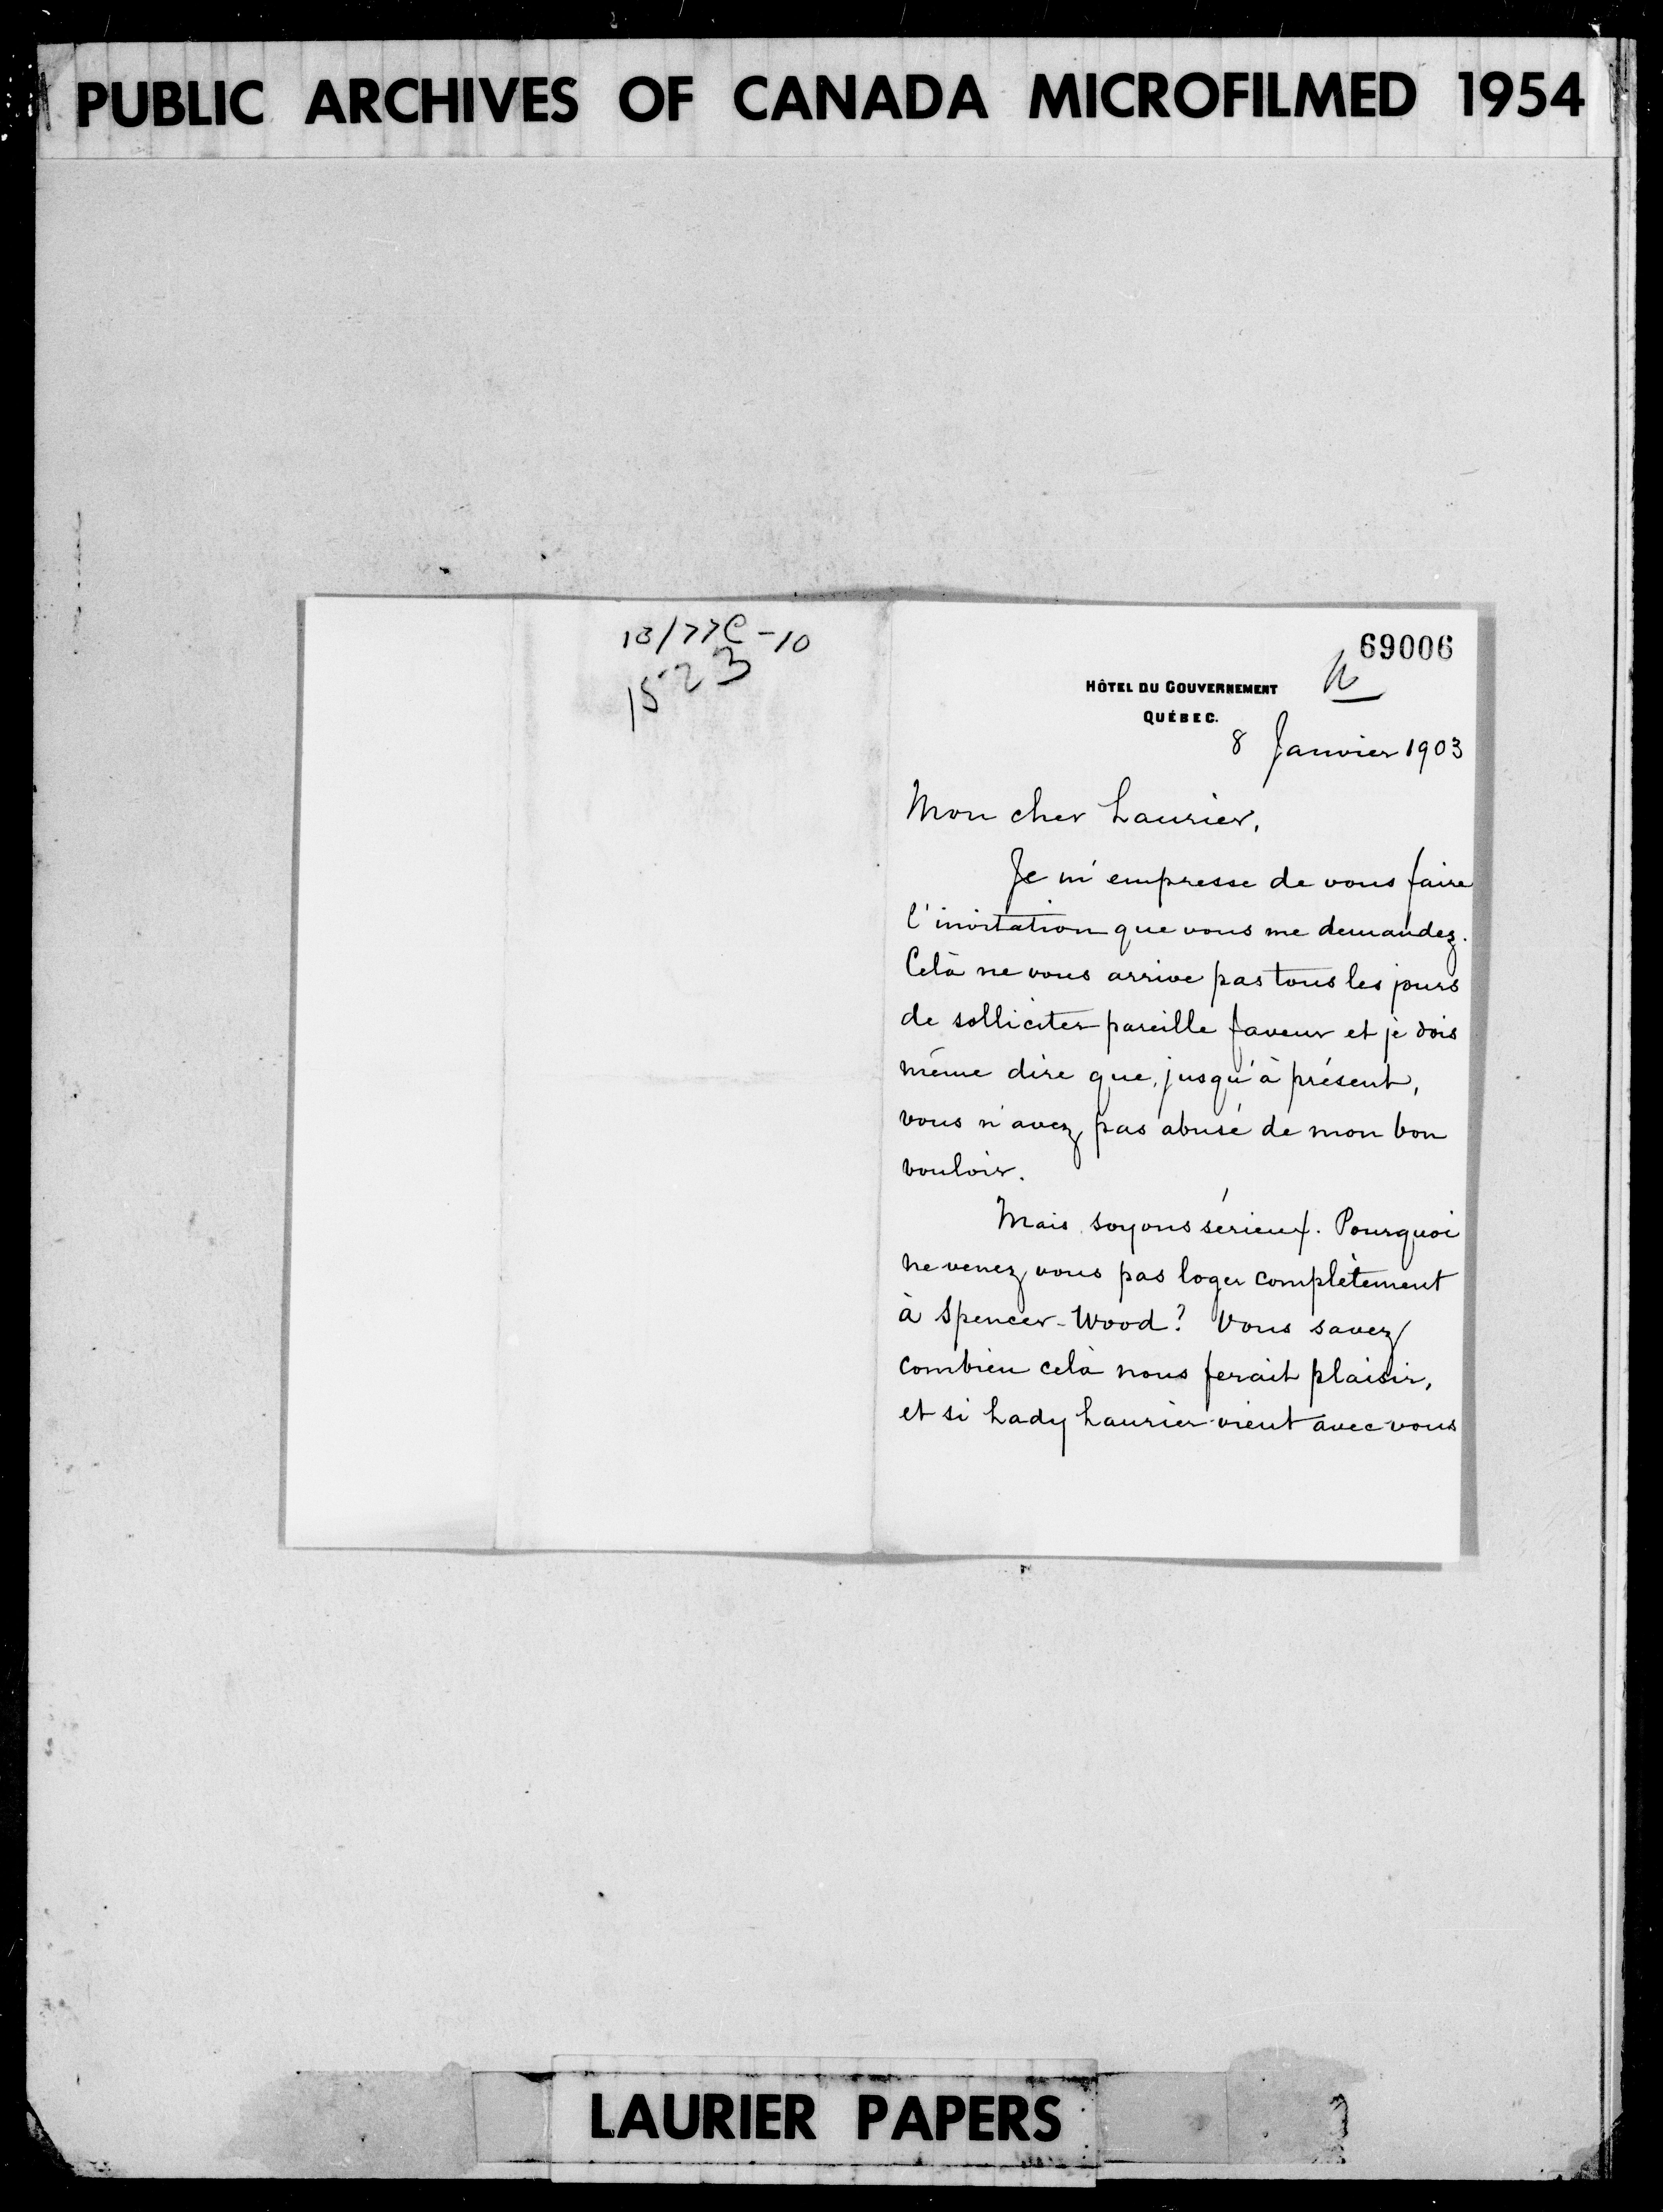 PUBLIC ARCHIVES OF CANADA MICROFILMED 1954
1523
69006
HÔTEL DU GOUVERNEMENT
QUÉBEC.
8 Janvier 1903
Mon cher Laurier,
Je m'empresse de vous faire
l'invitation que vous me demandez.
Celà ne vous arrive pas tous les jours
de solliciter pareille faveur et je dois
même dire que, jusqu'à présent,
vous n'avez pas abusé de mon bon
vouloir.
Mais soyons sérieux. Pourquoi
ne venez vous pas loger complètement
à Spencer-Wood? Vous savez
combien celà nous ferait plaisir,
et si Lady Laurier vient avec vous
LAURIER PAPERS